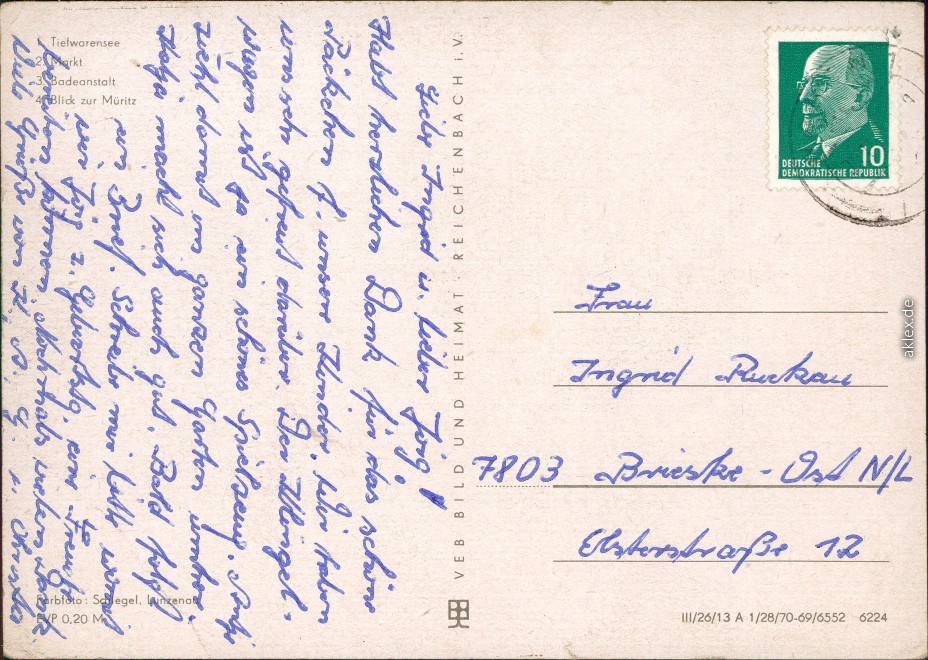 Tiefwarensee
2. Markt
3. Badeanstalt
4. Blick zur Müritz
Liebe Ingrid u. lieber Jörg!
Habt herzlichen Dank für das schöne
Päckchen f. unsere Kinder. Wir haben
uns sehr gefreut darüber. Der Klingel-
wagen ist ja ein schönes Spielzeug.
zieht damit im ganzen Garten umher.
Katja macht sich auch gut. Bald folgt
ein Brief. Schreibe mir bitte womit
wir Jörg z. Geburtstg. eine Freude
bereiten können. Nochmals vielen Dank
Viele Grüße von
Farbfoto: Schlegel, Lunzenau
EVP 0,20 M
VEB BILD UND HEIMAT REICHENBACH i.V.
DEUTSCHE 10
DEMOKRATISCHE REPUBLIK
Frau
Ingrid Ruckau
7803 Brieske - Ost N/L
Elsterstraße 12
III/26/13 A 1/28/70-69/6552 6224
aklex.de